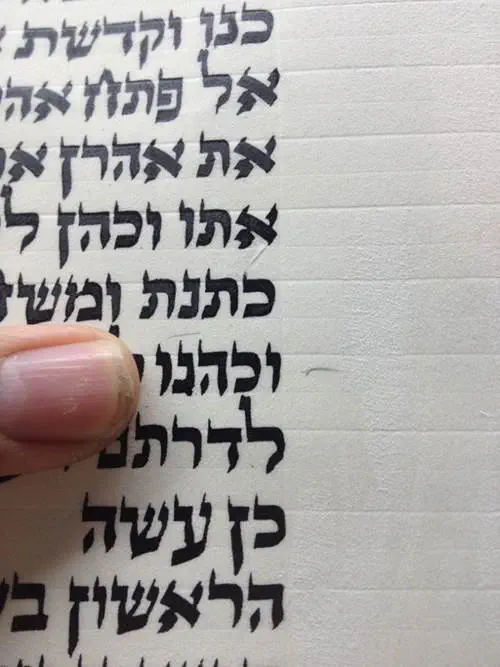 כנו וקדשת
אל פתח
את אהרן
אתו וכהן
כתנת
וכהנו
לדרתם
כן עשה
הראשון